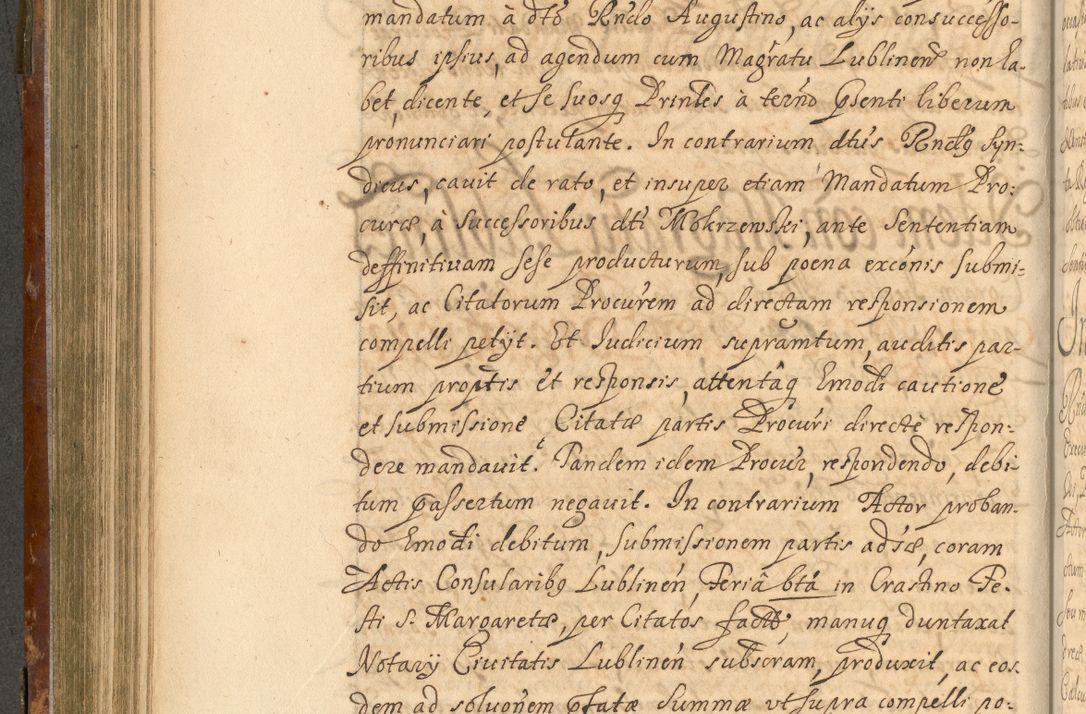 mandatum à dtō Rndo Augustino, ac alijs consuccesso-
ribus ipsius, ad agendum cum Magratu Lublinen non ha-
bet, dicente, et se suosq Prinles à termō pnsenti liberum
pronunciari postulante. In contrarium dtus Rndq Syn-
dicus, cavit de rato, et insuper etiam Mandatum Pro:
curæ, à Successoribus dti Mokrzewski, ante Sententiam
deffinitivam sese producturum, sub poena exconis submi:
sit, ac Citatorum Procurem ad directam responsionem
compelli petijt. Et Iudicium supramtum, auditis par-
tium proptis et responsis, attentaq hmodi cautione
et submissione Citatæ partis Procuri directè respon:
dere mandavit. Tandem idem Procur, respondendo, debi
tum passertum negavit. In contrarium Actor proban-
do hmodi debitum, submissionem partis adsæ, coram
Actis Consularibq Lublinen, Feria btâ in Crastino Fe-
sti S. Margaretæ, per Citatos factâ, manuq duntaxat
Notarij Civitatis Lublinen subscram, produxit, ac eos
dem ad solvonem pfatæ Summæ ut supra compelli po-